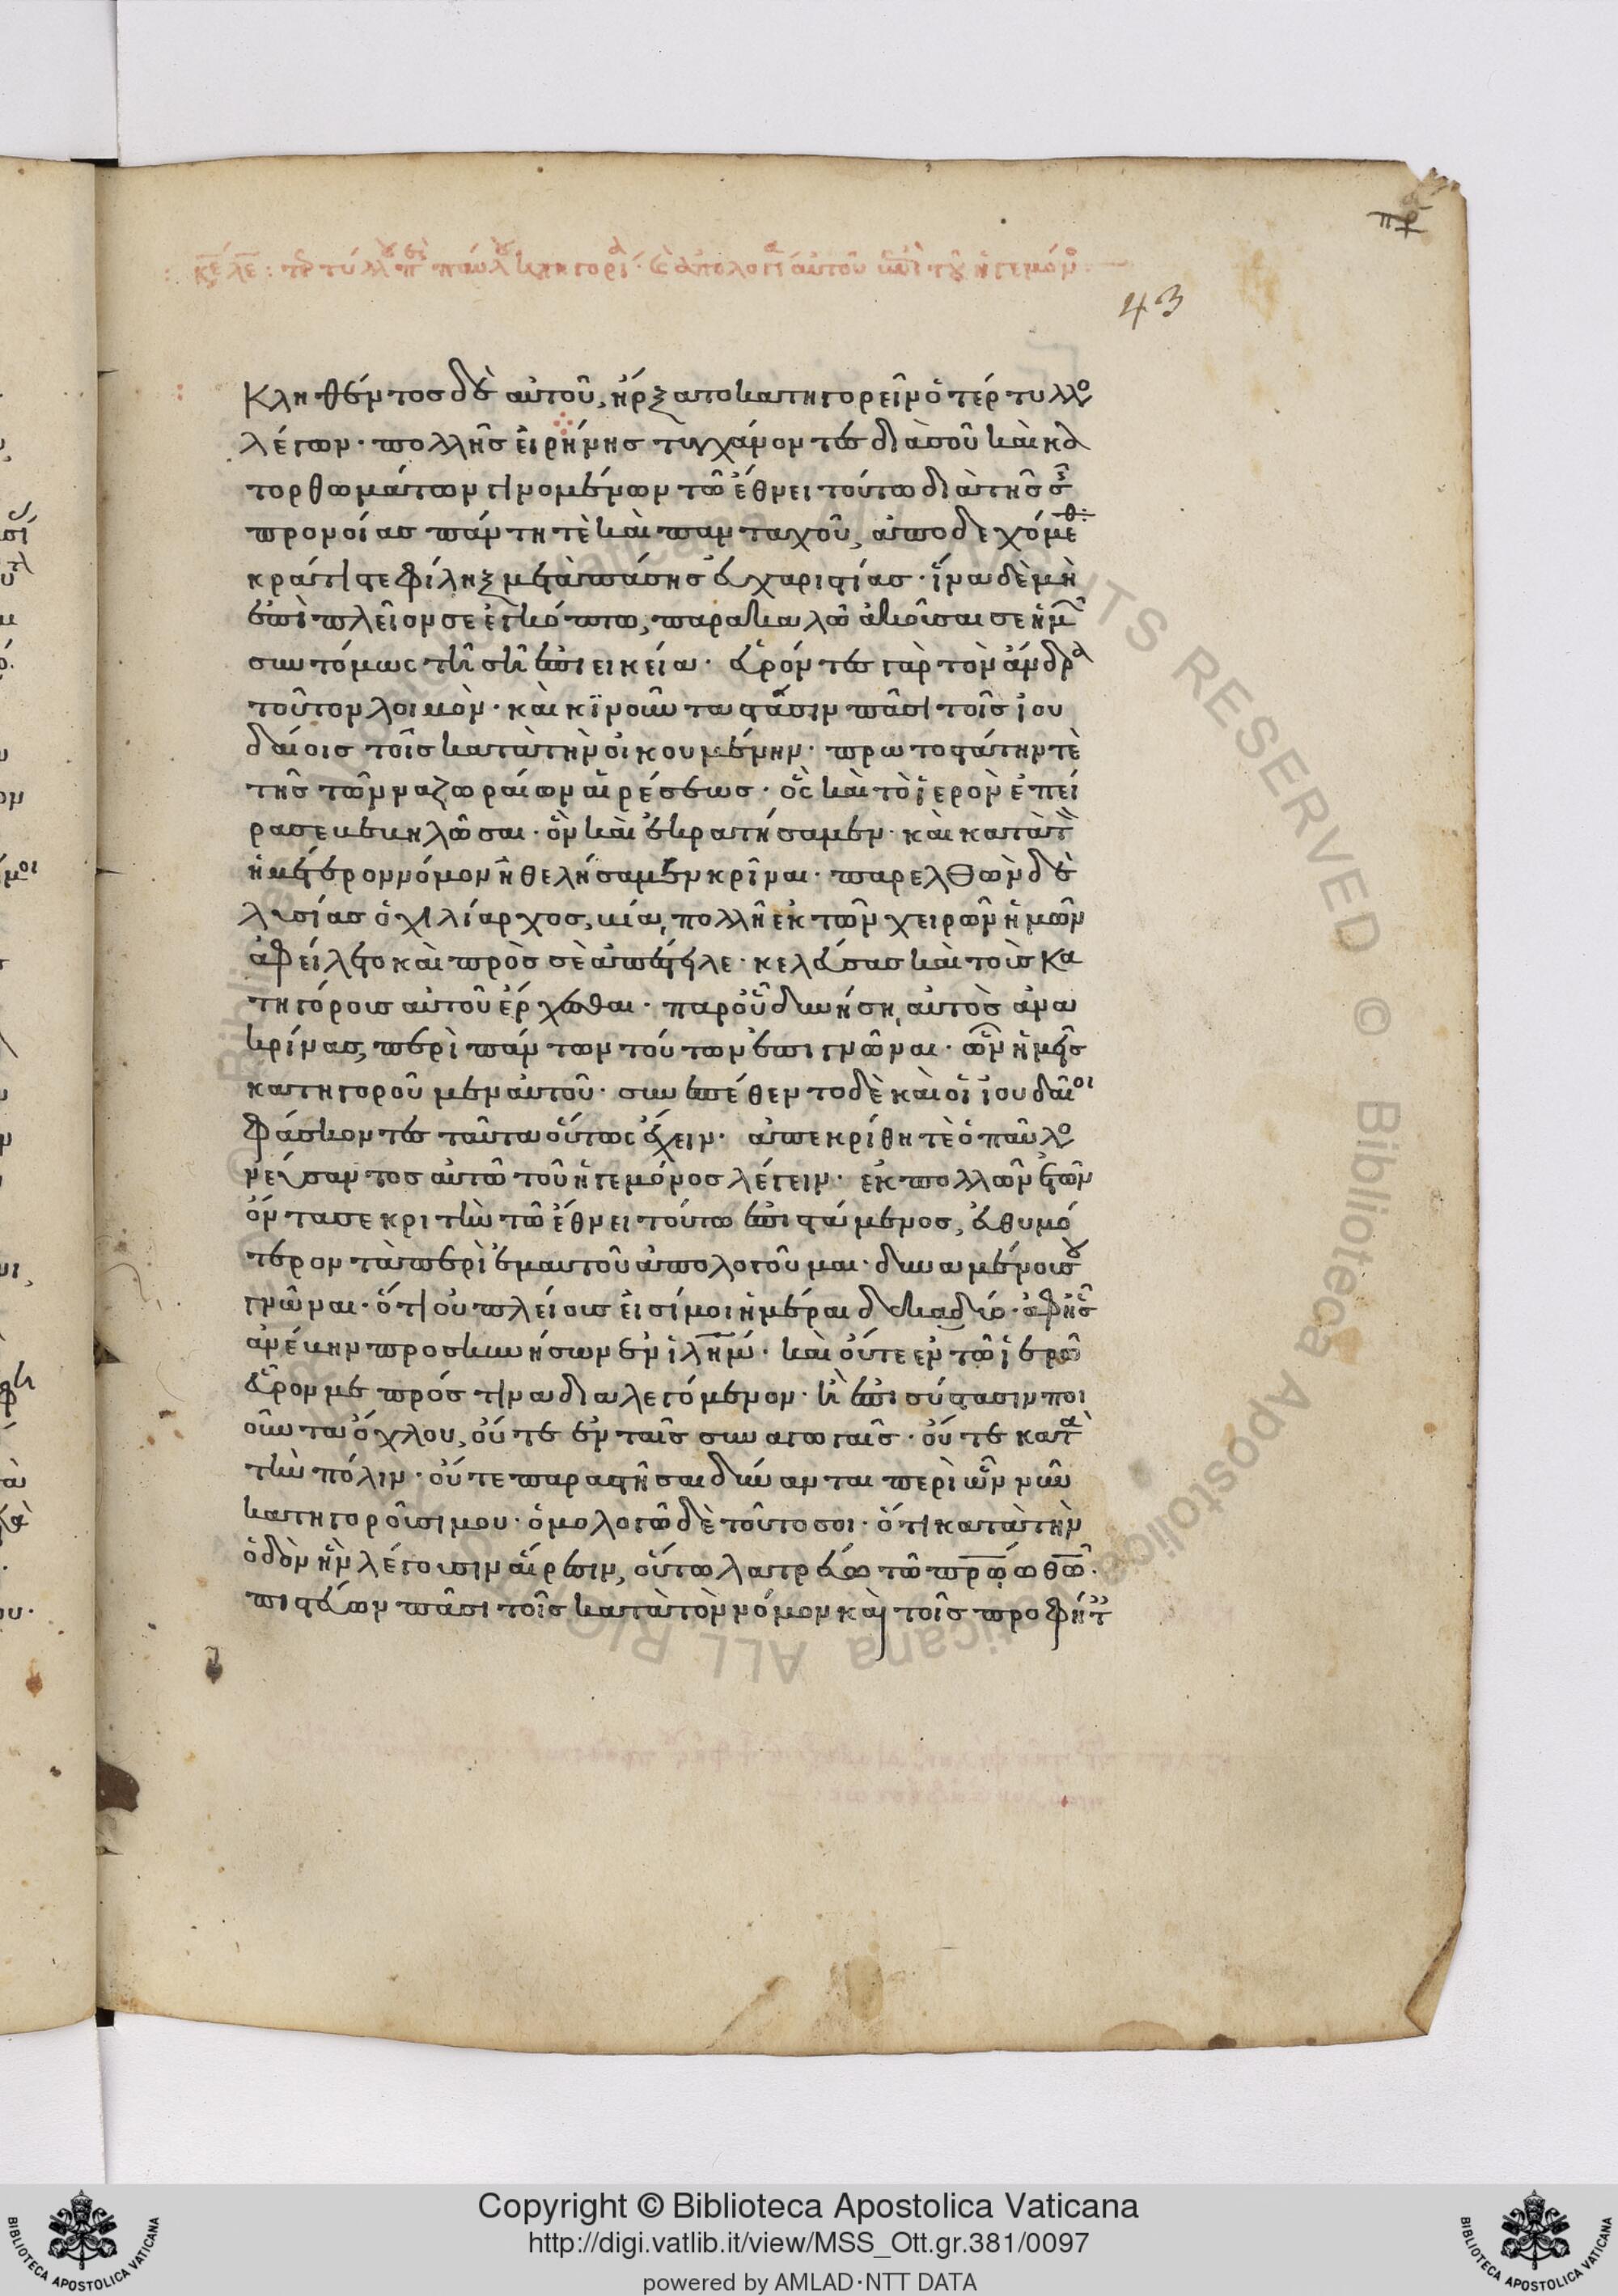 πζ
κε λε: τερτύλλου ἐπὶ παύλου κατηγορία· καὶ ἀπολογία αὐτοῦ ἐπὶ τοῦ ἡγεμόνος
43
Κληθέντος δὲ αὐτοῦ, ἤρξατο κατηγορεῖν ὁ τέρτυλλο
λέγων· πολλῆς εἰρήνης τυγχάνοντες διὰ σοῦ καὶ κα
τορθωμάτων γινομένων τῶ ἔθνει τούτω διὰ τῆς σῆς
προνοίας πάντη τὲ καὶ πανταχοῦ, ἀποδεχόμεθα
κράτιστε φίληξ μετὰ πάσης εὐχαριστίας· ἵνα δὲ μὴ
ἐπὶ πλεῖον σε ἐγκόπτω, παρακαλῶ ἀκοῦσαι σε ἡμῶν
συντόμως τῆ σῆ ἐπιεικεία· εὑρόντες γὰρ τὸν ἄνδρα
τοῦτον λοιμὸν· καὶ κϊνοῦντα στάσιν πᾶσι τοῖς ἰου
δαίοις τοῖς κατὰ τὴν οἰκουμένην· πρωτοστάτην τὲ
τῆς τῶν ναζωραίων αἱρέσεως· ὃς καὶ τὸ ἱερὸν ἐπεί
ρασε βεβηλῶσαι· ὃν καὶ ἐκρατήσαμεν· καὶ κατὰ τὸ
ἡμέτερον νόμον ἠθελήσαμεν κρῖναι· παρελθὼν δὲ
λυσίας ὁ χιλίαρχος, βία πολλῆ ἐκ τῶν χειρῶν ἡμῶν
ἀφείλετο καὶ πρὸς σὲ ἀπέστειλε· κελεύσας καὶ τοὺς κα
τηγόρους αὐτοῦ ἔρχεσθαι· παρ οὗ δυνήση, αὐτὸς ἀνα
κρίνας, περὶ πάντων τούτων ἐπιγνῶναι· ὧν ἡμεῖς
κατηγοροῦμεν αὐτοῦ· συνεπέθεντο δὲ καὶ οἱ ἰουδαῖοι
φάσκοντες ταῦτα οὕτως ἔχειν· ἀπεκρίθη τὲ ὁ παῦλο
νεύσαντος αὐτῶ τοῦ ἡγεμόνος λέγειν· ἐκ πολλῶν ἐτῶν
ὄντα σε κριτὴν τῶ ἔθνει τούτω ἐπιστάμενος, εὐθυμό
τερον τὰ περὶ ἐμαυτοῦ ἀπολογοῦμαι· δυναμένου σου
γνῶναι· ὅτι οὐ πλείους εἰσί μοι ἡμέραι δεκαδύο· ἀφ ἧς
ἀνέβην προσκυνήσων ἐν ἱλημ· καὶ οὔτε ἐν τῶ ἱερῶ
εὗρον με πρός τινα διαλεγόμενον· ἢ ἐπισύστασιν ποι
οῦντα ὄχλου, οὔτε ἐν ταῖς συναγωγαῖς· οὔτε κατὰ
τὴν πόλιν· οὔτε παραστῆσαι δύνανται περὶ ὧν νῦν
κατηγοροῦσι μου· ὁμολογῶ δὲ τοῦτο σοι· ὅτι κατὰ τὴν
ὁδὸν ἣν λέγουσιν αἵρεσιν, οὕτω λατρεύω τῶ πρώω θῶ·
πιστεύων πᾶσι τοῖς κατὰ τὸν νόμον καὶ τοῖς προφήτ
Copyright © Biblioteca Apostolica Vaticana
http://digi.vatlib.it/view/MSS_Ott.gr.381/0097
powered by AMLAD·NTT DATA